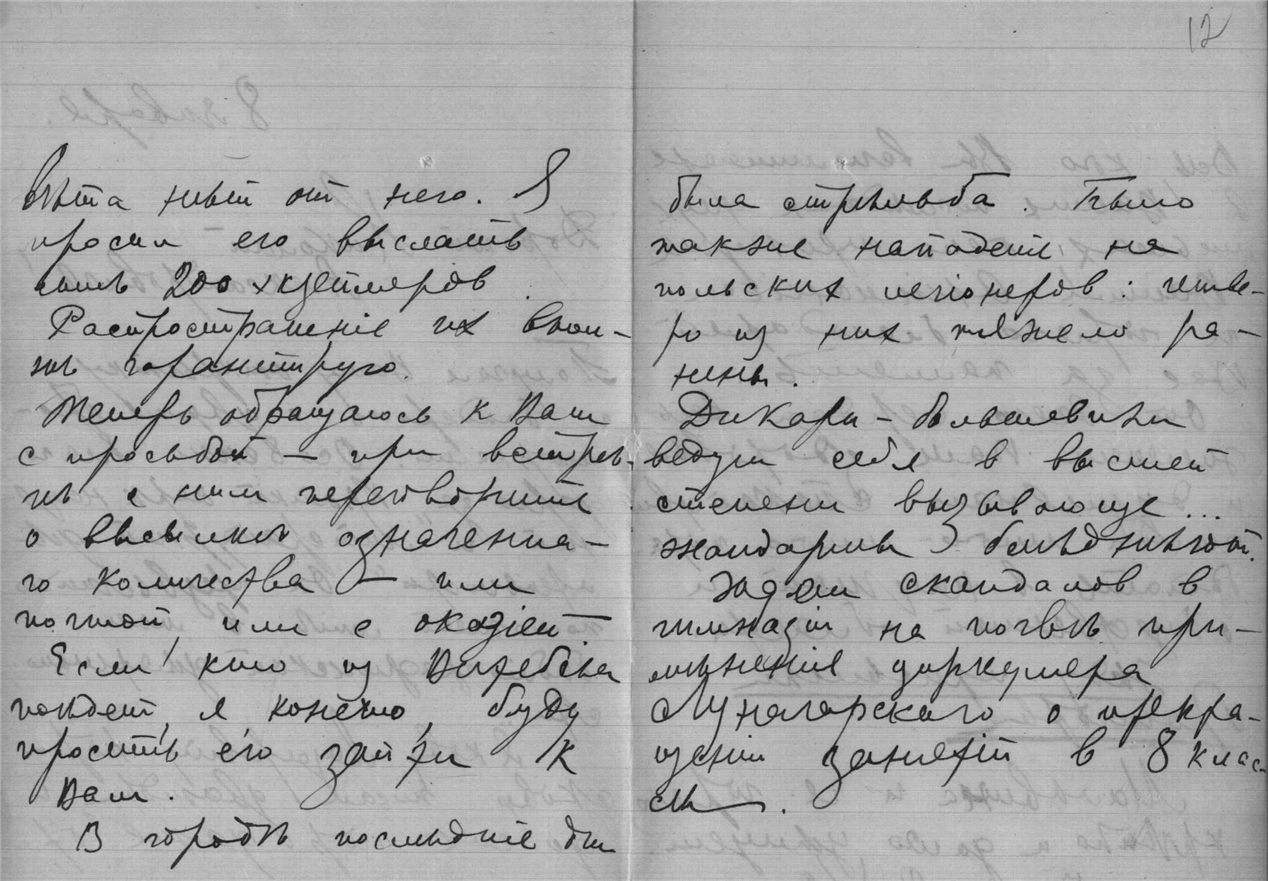 вѣта нѣтъ отъ него. Я
просилъ его выслать
лишь 200 экземпляров.
Распространеніе их впол-
нѣ гарантирую.
Теперь обращаюсь к Вам
с просьбой — при встрѣ-
чѣ с ним переговорить
о высылкѣ означенна-
го количества — или
почтой, или с оказіей.
Если кто из Витебска
поѣдет, я, конечно, буду
просить его зайти к
Вам.
В городѣ послѣдніе дни
12
была стрѣльба. Было
также нападеніе на
польских легіонеров: четве-
ро из них тяжело ра-
нены.
Дикари-большевики
ведут себя в высшей
степени вызывающе...
Жандармы блѣднѣют.
Ждем скандалов в
гимназіи на почвѣ при-
мѣненія циркуляра
Луначарскаго о прекра-
щеніи занятій в 8 клас-
сѣ.